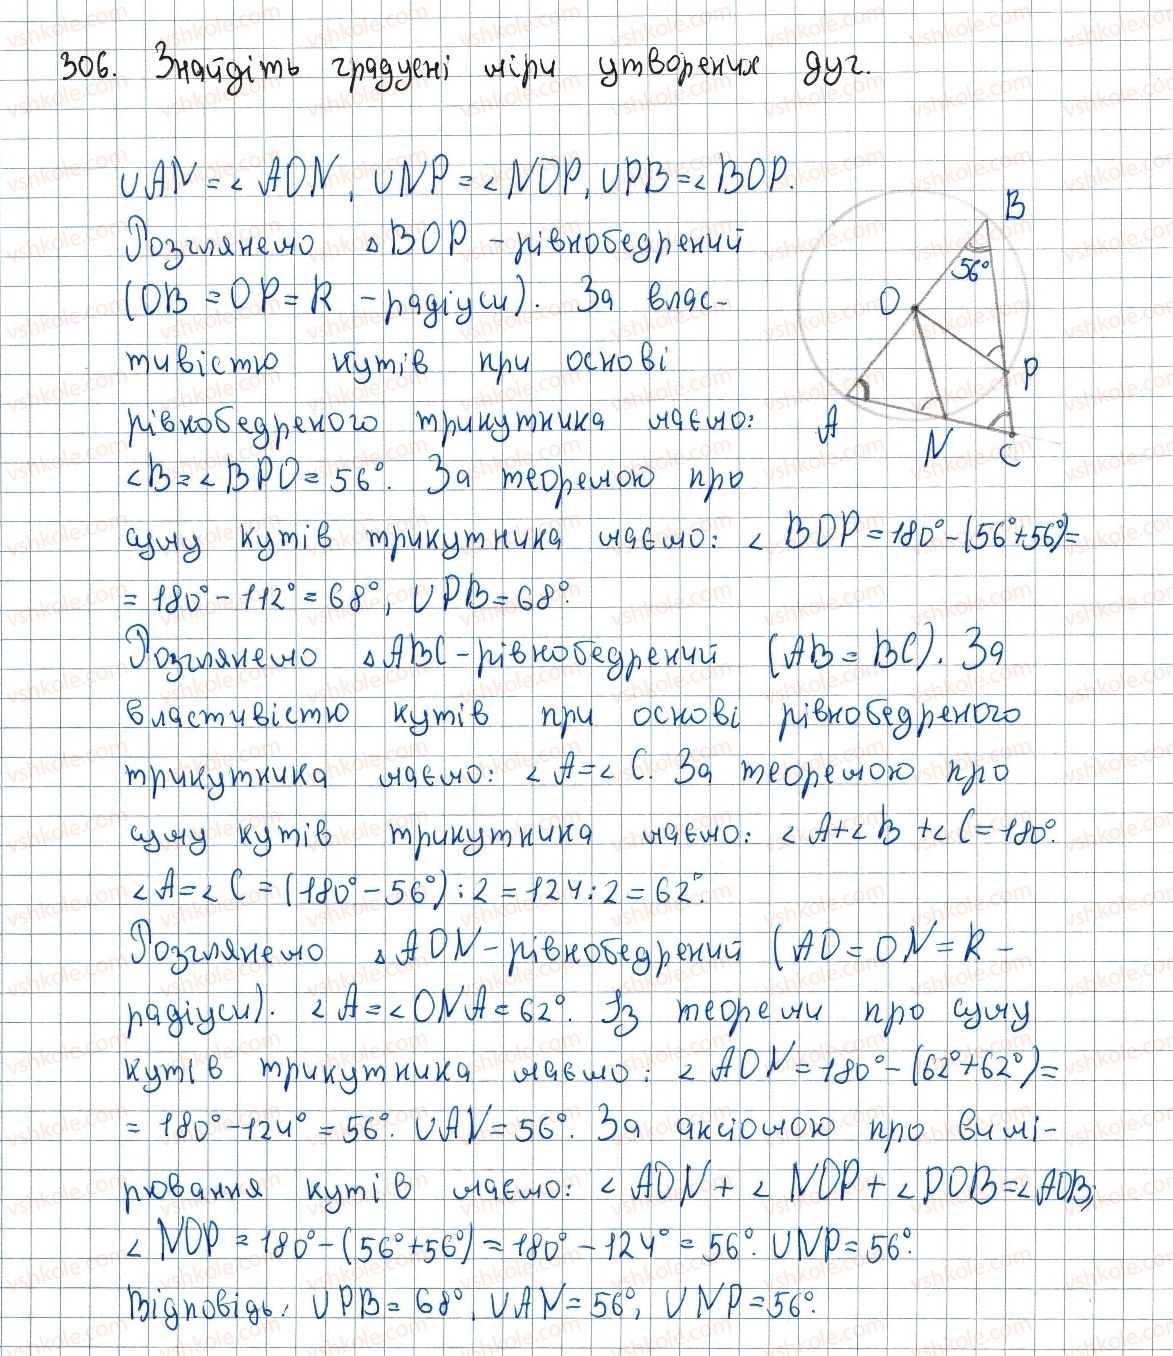 306. Знайдіть градусні міри утворених дуг.
∪AN = ∠AON, ∪NP = ∠NOP, ∪PB = ∠BOP.
Розглянемо △BOP - рівнобедрений
(OB = OP = R - радіуси). За влас-
тивістю кутів при основі
рівнобедреного трикутника маємо:
∠B = ∠BPO = 56°. За теоремою про
суму кутів трикутника маємо: ∠BOP = 180° - (56° + 56°) =
= 180° - 112° = 68°, ∪PB = 68°.
Розглянемо △ABC - рівнобедрений (AB = BC). За
властивістю кутів при основі рівнобедреного
трикутника маємо: ∠A = ∠C. За теоремою про
суму кутів трикутника маємо: ∠A + ∠B + ∠C = 180°.
∠A = ∠C = (180° - 56°) : 2 = 124 : 2 = 62°.
Розглянемо △AON - рівнобедрений (AO = ON = R -
радіуси). ∠A = ∠ONA = 62°. Із теореми про суму
кутів трикутника маємо: ∠AON = 180° - (62° + 62°) =
= 180° - 124° = 56°. ∪AN = 56°. За аксіомою про вимі-
рювання кутів маємо: ∠AON + ∠NOP + ∠POB = ∠AOB;
∠NOP = 180° - (56° + 56°) = 180° - 124° = 56°. ∪NP = 56°.
Відповідь: ∪PB = 68°, ∪AN = 56°, ∪NP = 56°.
B
56°
O
P
A
N
C